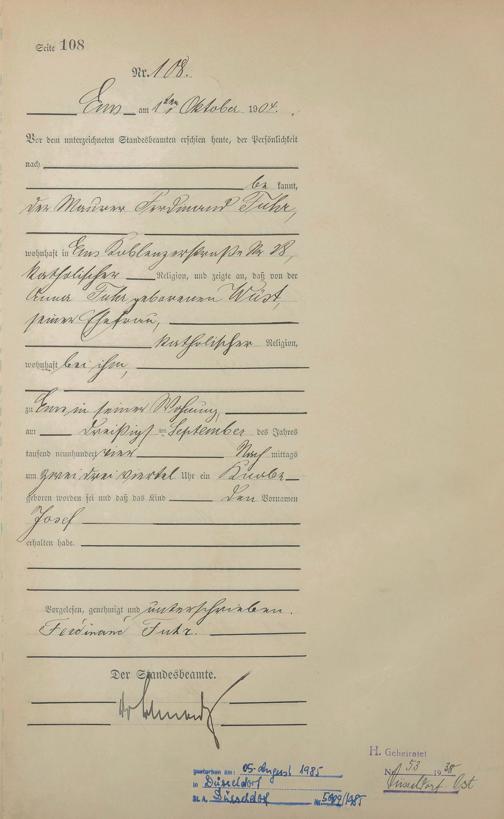 Seite 108
Nr. 108.
Ems am 1ten Oktober 1904.
Vor dem unterzeichneten Standesbeamten erschien heute, der Persönlichkeit
nach
be kannt,
der Maurer Ferdinand Fuhr,
wohnhaft in Ems Koblenzerstraße Nr 28,
katholischer Religion, und zeigte an, daß von der
Anna Fuhr geborenen Wüst,
seiner Ehefrau,
katholischer Religion,
wohnhaft bei ihm,
zu Ems in seiner Wohnung,
am dreißigsten September des Jahres
tausend neunhundert vier Nach mittags
um zwei drei viertel Uhr ein Knabe
geboren worden sei und daß das Kind den Vornamen
Josef
erhalten habe.
Vorgelesen, genehmigt und unterschrieben.
Ferdinand Fuhr.
Der Standesbeamte.
gestorben am: 05. August 1985
in Düsseldorf
St. A. Düsseldorf Nr. /1985
H. Geheiratet
Nr. 53 1938
Düsseldorf Ost